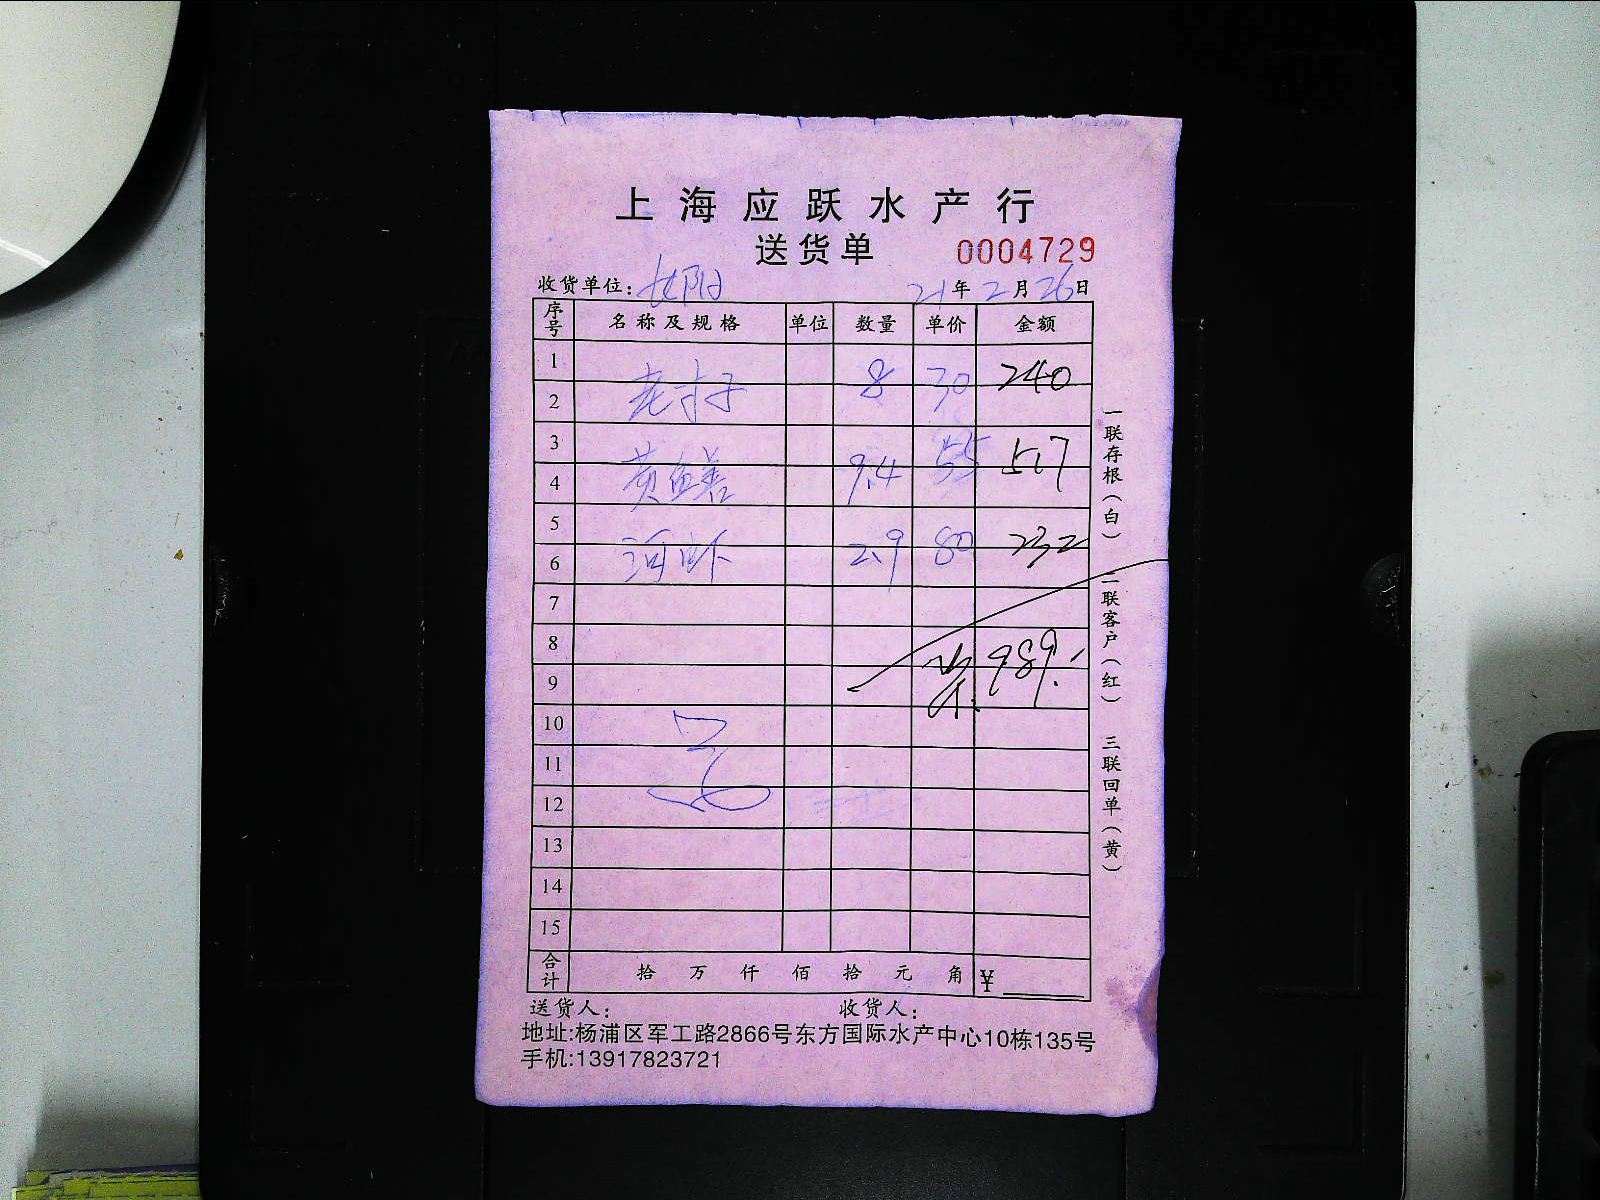 上海应跃水产行
送货单 0004729
收货单位: 21年2月26日
序号 名称及规格 单位 数量 单价 金额
1
老才子 8 30 240
2
3
黄鱼善 9.4 55 517
4
5
河虾 2.9 80 232
6
7
8
989.
9
10
11
12
13
14
15
合计 拾 万 仟 佰 拾 元 角 ¥
送货人: 收货人:
地址:杨浦区军工路2866号东方国际水产中心10栋135号
手机:13917823721
一联存根(白) 二联客户(红) 三联回单(黄)